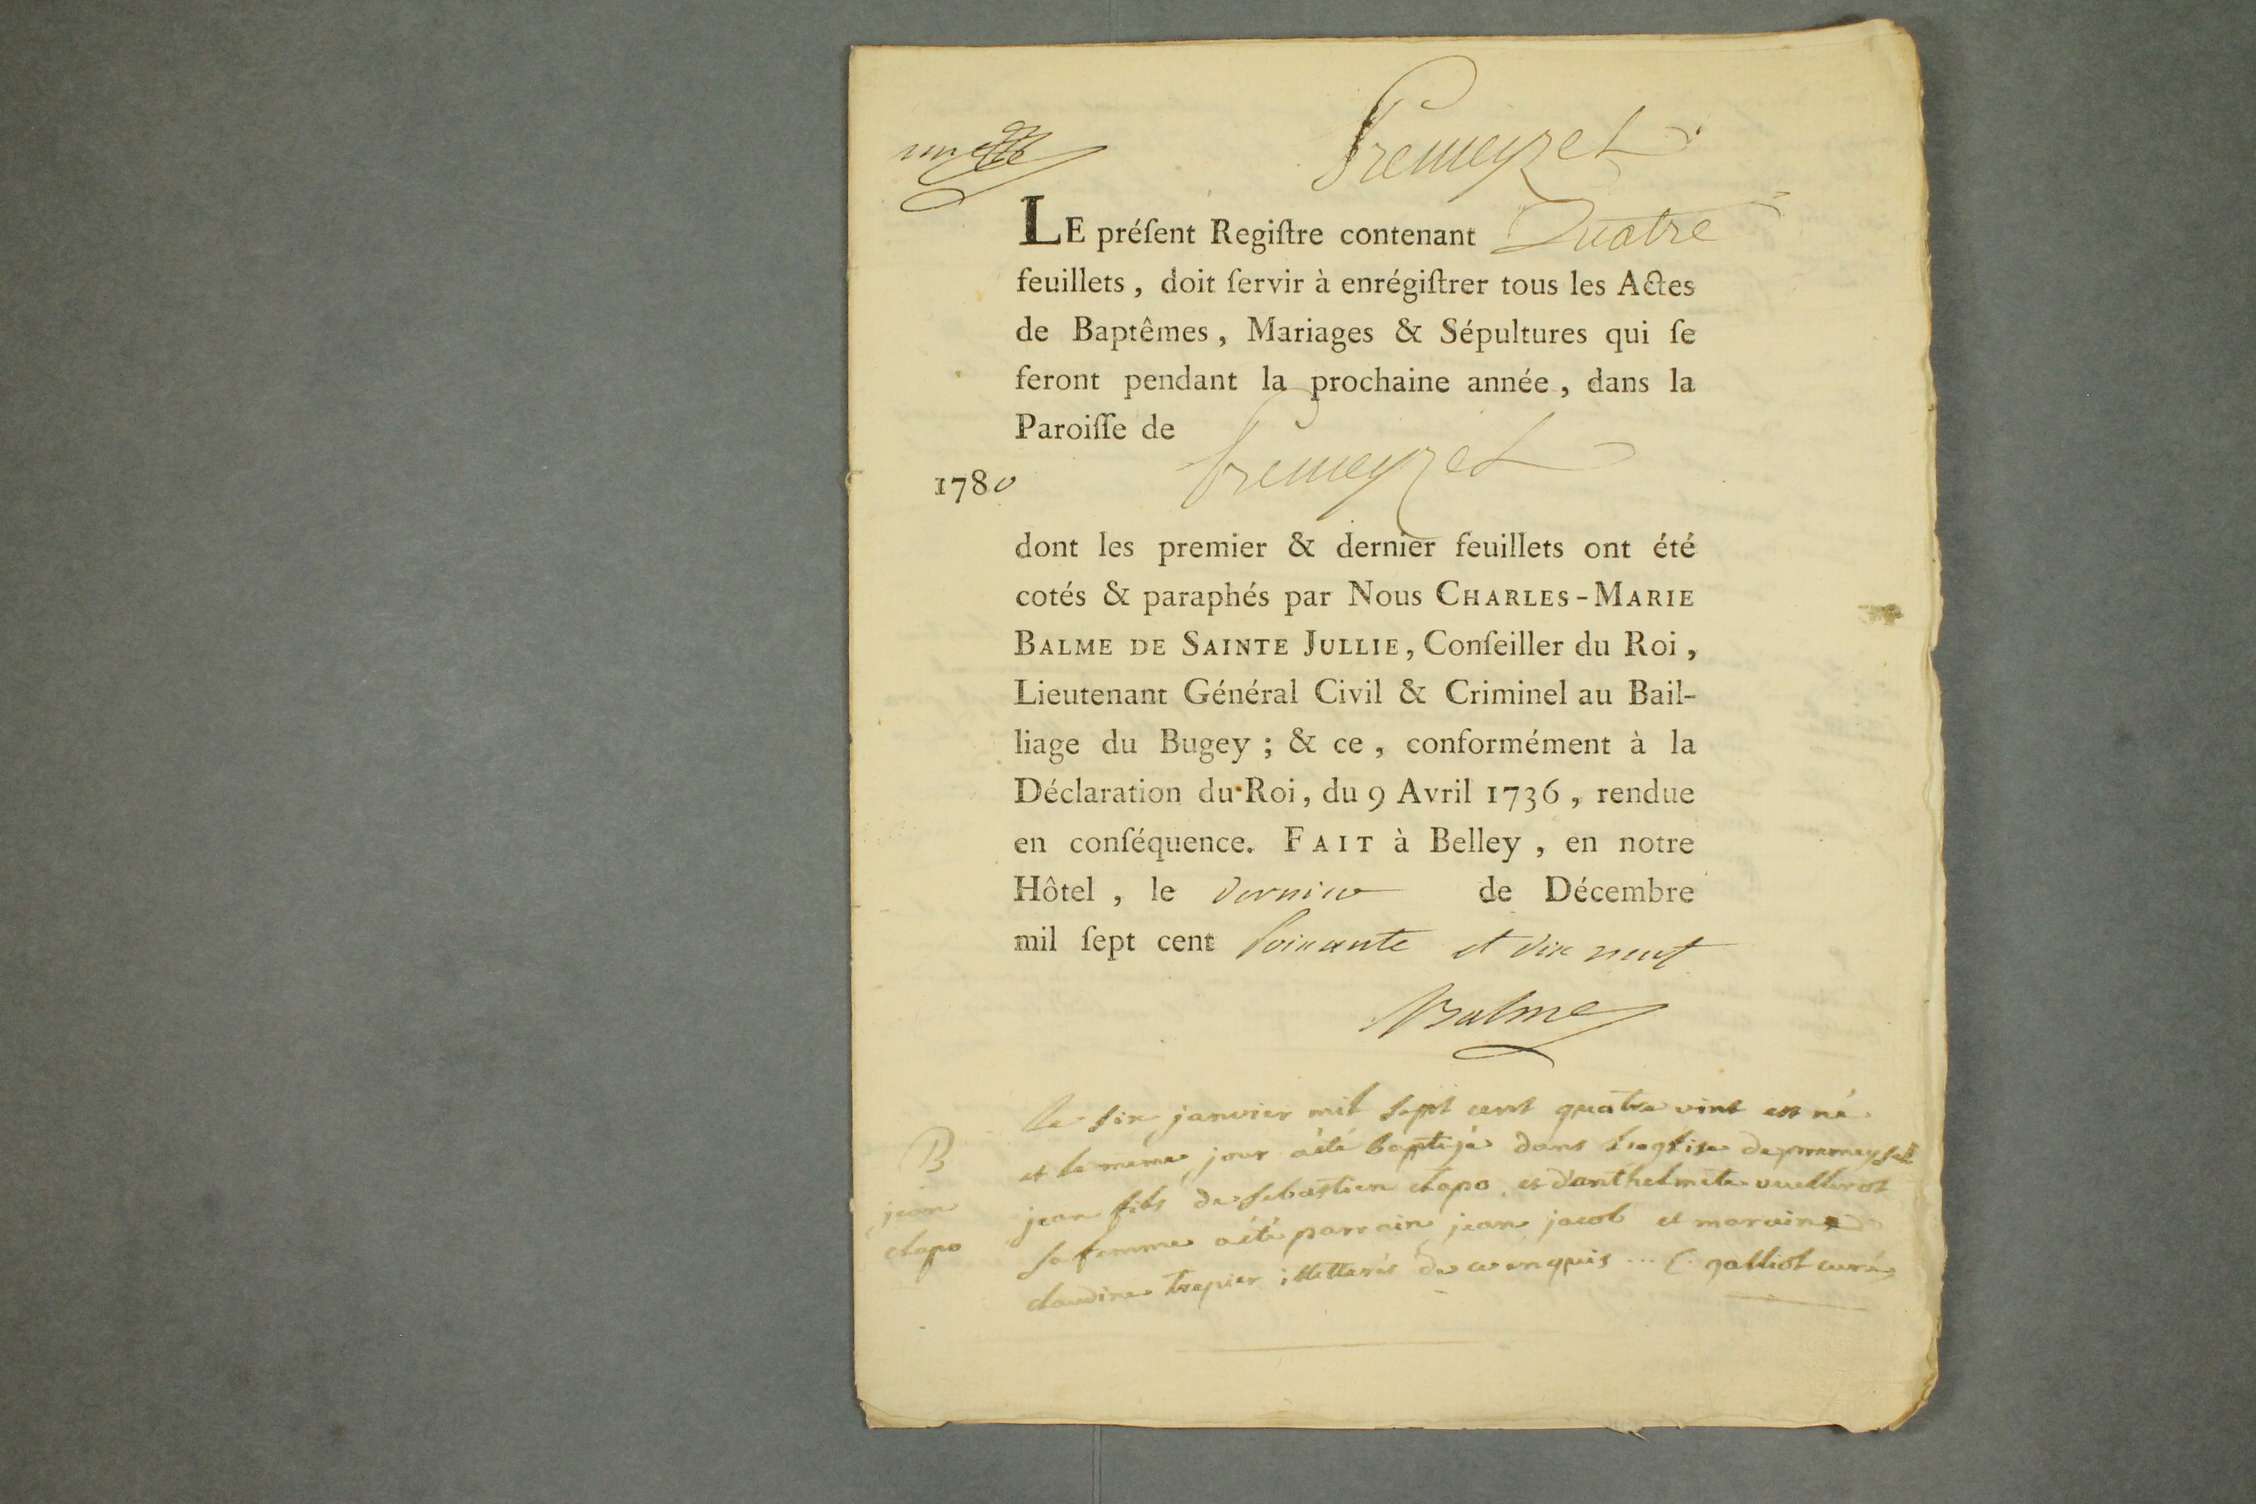 un
Premeyzel
LE préſent Regiſtre contenant Quatre
feuillets, doit ſervir à enrégiſtrer tous les Actes
de Baptêmes, Mariages & Sépultures qui ſe
feront pendant la prochaine année, dans la
Paroiſſe de
1780 Premeyzel
dont les premier & dernier feuillets ont été
cotés & paraphés par Nous CHARLES-MARIE
BALME DE SAINTE JULLIE, Conſeiller du Roi,
Lieutenant Général Civil & Criminel au Bail-
liage du Bugey; & ce, conformément à la
Déclaration du Roi, du 9 Avril 1736, rendue
en conſéquence. FAIT à Belley, en notre
Hôtel, le dernier de Décembre
mil ſept cent soixante et dix neuf
Balme
le six janvier mil sept cent quatre vint est né
B et le meme jour aété baptisé dans l'eglise de premeysel
jean jean fils de sebastien clapo et d'anthelmete vuillerot
clapo sa femme aété parrain jean jacob et maraine
claudine trepier illetterés de ce enquis ... C. galliot curé